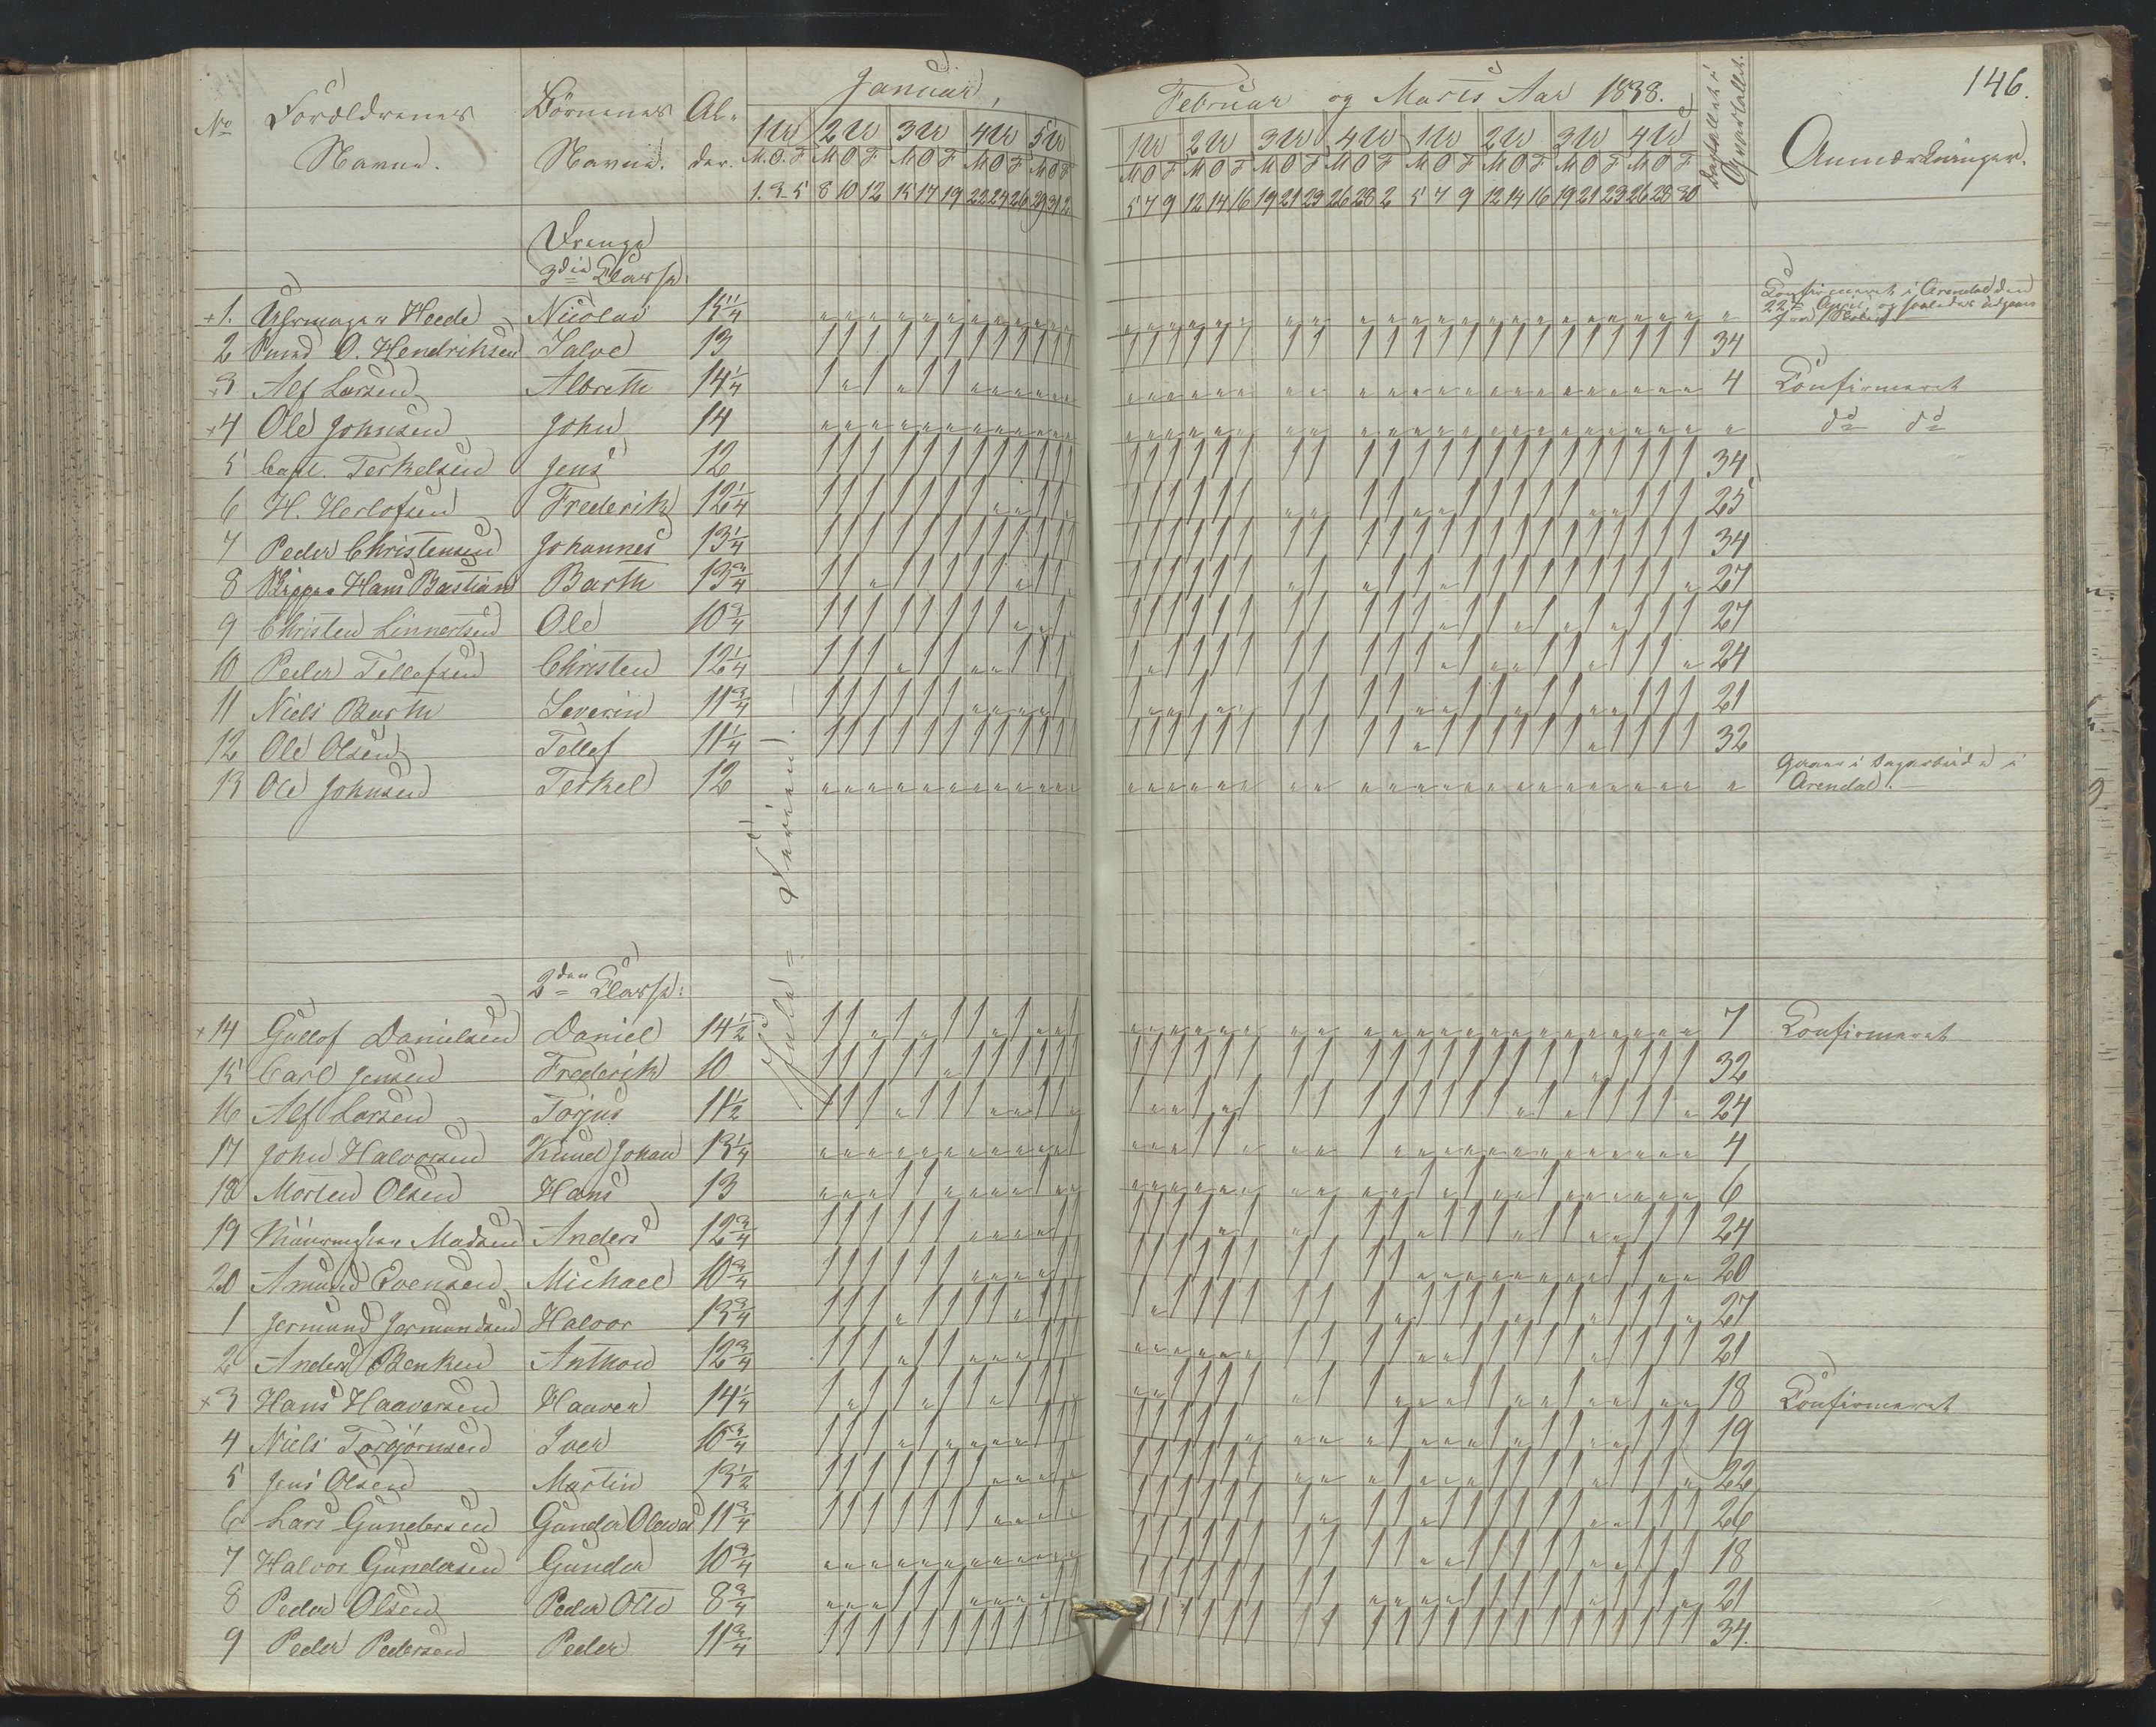 Januar, Februar og Marts Aar 1838. 146.
No Forældrenes Navne. Börnenes Navne. Al- der. 1 U 2 U 3 U 4 U 5 U 1 U 2 U 3 U 4 U 1 U 2 U 3 U 4 U Dagtallet i Qvartallet. Anmærkninger.
M. O. F M O F M O F M O F M O F M O F M O F M O F M O F M O F M O F M O F M O F
1. 3. 5 8 10 12 15 17 19 22 24 26 29 31 2 5 7 9 12 14 16 19 21 23 26 28 2 5 7 9 12 14 16 19 21 23 26 28 30
Drenge
3die Classe:
+1. Uhrmager Heede Nicolai 15 1/4 " Confirmeret i Arendal den
22de April, og saaledes udgaaet
fra Skolen
2 Amund O. Hendriksen Salve 13 34
+3 Alf Larsen Albreth 14 1/4 4 Confirmeret
+4 Ole Johnsen John 14 " do do
5 Capt. Terkelsen Jens 12 34
6 H. Herlofsen Frederik 12 1/4 25
7 Peder Christensen Johannes 13 1/4 34
8 Skipper Hans Bastian Barth 13 3/4 27
9 Christen Linnertsen Ole 10 3/4 27
10 Peder Tellefsen Christen 12 1/4 24
11 Niels Barth Severin 11 3/4 21
12 Ole Olsen Tellef 11 1/4 32
13 Ole Johnsen Terkel 12 " Gaaer i Dagarbeide i
Arendal.
Jule-Ferien.
2den Classe:
+14 Gullof Danielsen Daniel 14 1/2 7 Confirmeret
15 Carl Jensen Frederik 10 32
16 Alf Larsen Torjus 11 1/2 24
17 John Halvorsen Knud Johan 13 1/4 4
18 Morten Olsen Hans 13 6
19 Muurmester Madsen Anders 12 3/4 24
20 Amund Evensen Michael 10 3/4 20
1 Jermund Jermundsen Halvor 13 3/4 27
2 Anders Benken Anthon 12 3/4 21
+3 Hans Haaversen Haaver 14 1/4 18 Confirmeret
4 Niels Torbjörnsen Iver 10 3/4 19
5 Jens Olsen Martin 13 1/2 22
6 Lars Gundersen Gunder Olaus 11 3/4 26
7 Halvor Gundersen Gunder 10 3/4 18
8 Peder Olsen Peder Otto 8 3/4 21
9 Peder Pedersen Peder 11 3/4 34.